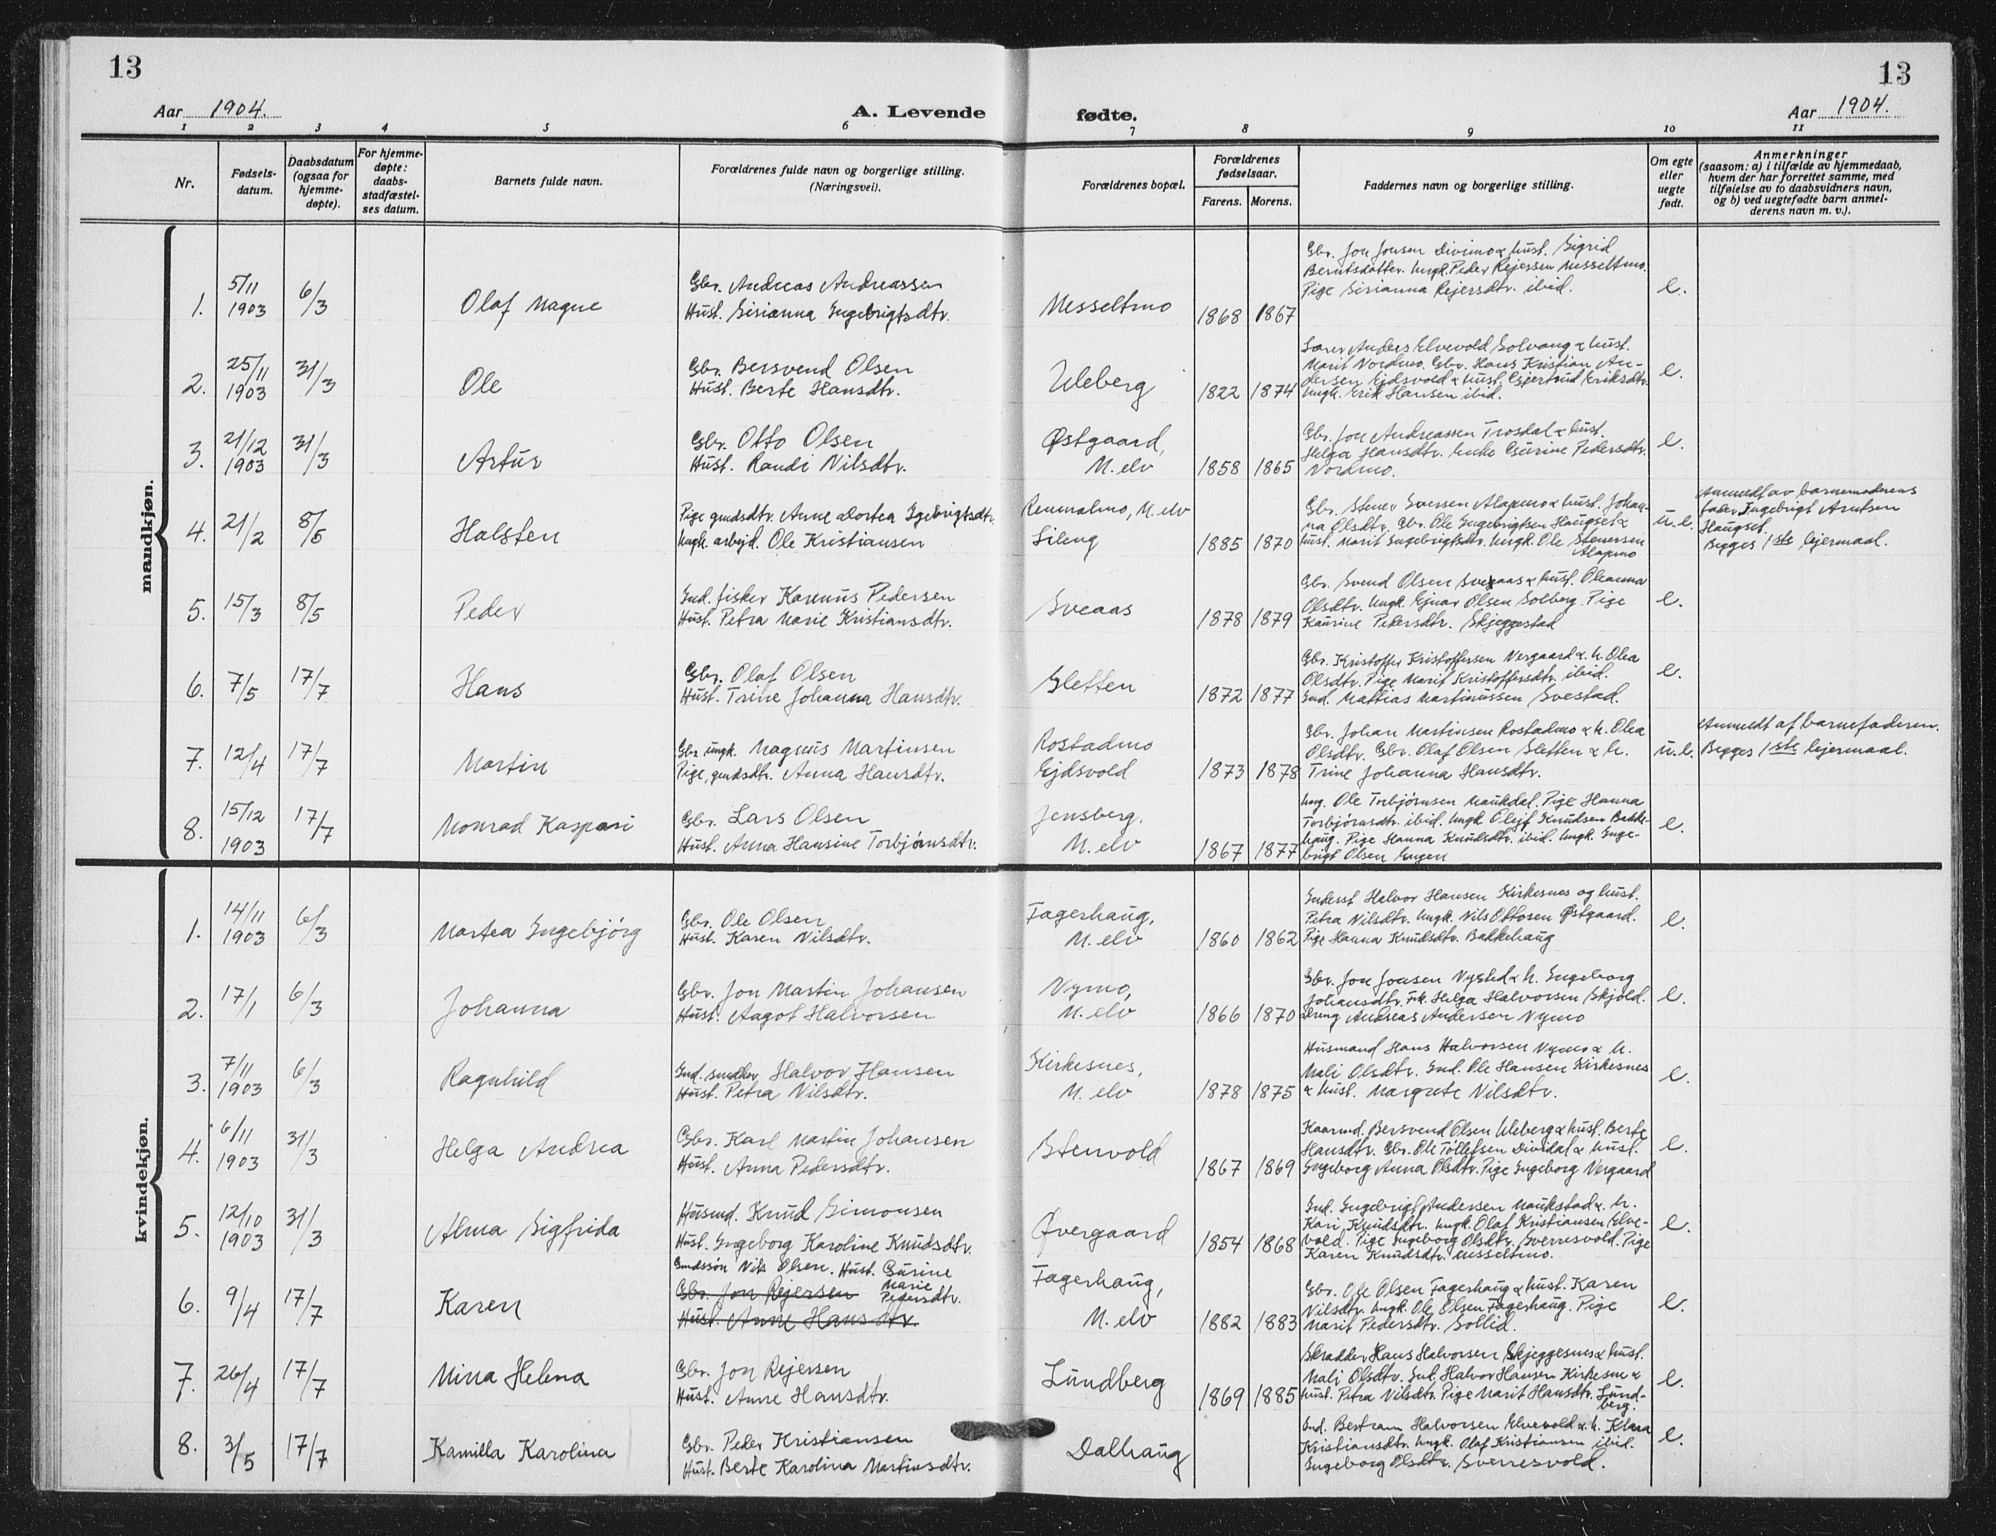 13
13
Aar 1904.
A. Levende
fødte.
Aar 1904.
1 2 3 4 5 6 7 8 9 10 11
Nr.
Fødsels-
datum.
Daabsdatum
(ogsaa for
hjemme-
døpte).
For hjemme-
døpte:
daabs-
stadfæstel-
ses datum.
Barnets fulde navn.
Forældrenes fulde navn og borgerlige stilling.
(Næringsvei).
Forældrenes bopæl.
Forældrenes
fødselsaar.
Farens. Morens.
Faddernes navn og borgerlige stilling.
Om egte
eller
uegte
født.
Anmerkninger
(saasom: a) i tilfælde av hjemmedaab,
hvem der har forrettet samme, med
tilføielse av to daabsvidners navn,
og b) ved uegtefødte barn anmel-
derens navn m. v.).
mandkjøn.
1. 5/11 1903 6/3 Olaf Magne
Gbr. Andreas Andreassen
Hust. Sirianna Ingebrigtsdtr.
Messeltmo 1868 1867
Gbr. Jon Jonsen Divimo & hust. Sigrid
Berntsdatter. Ungk. Peder Rejersen Messeltmo.
Pige Sirianna Rejersdtr. ibid.
e.
2. 25/11 1903 31/3 Ole
Gbr. Bersvend Olsen
Hust. Berte Hansdtr.
Uleberg 1822 1874
Lærer Anders Elvevold Solvang & hust.
Marit Nordmo. Gbr. Hans Kristian An-
dersen Ejdsvold & hust. Gjertrud Eriksdtr.
Ungk. Erik Hansen ibid.
e.
3. 21/12 1903 31/3 Artur
Gbr. Otto Olsen
Hust. Randi Nilsdtr.
Østgaard,
M. elv 1858 1865
Gbr. Jon Andreassen Trosdal & hust.
Helga Hansdtr. Enke Gurine Pedersdtr.
Nordmo.
e.
4. 21/2 8/5 Halsten
Pige gmdsdtr. Anne Dortea Ingebrigtsdtr.
Ungk. arbejd. Ole Kristiansen
Remmalmo, M. elv
Lileng 1885 1870
Gbr. Stener Sversen Alapmo & hust. Johan-
na Olsdtr. Gbr. Ole Ingebrigtsen Haugset &
hust. Marit Ingebrigtsdtr. Ungk. Ole Stenersen
Alapmo
u.e.
Anmeldt av barnemoderens
fader Ingebrigt Arntsen
Haugset.
Begges 1ste lejermaal.
5. 15/3 8/5 Peder
Ind. fisker Karenus Pedersen
Hust. Petra Marie Kristiansdtr.
Sveaas 1878 1879
Gbr. Svend Olsen Sveaas & hust. Oleanna
Olsdtr. Ungk. Ejnar Olsen Solberg. Pige
Kaurine Pedersdtr. Skjeggestad
e.
6. 7/5 17/7 Hans
Gbr. Olaf Olsen
Hust. Trine Johanna Hansdtr.
Sletten 1872 1877
Gbr. Kristoffer Kristoffersen Nergaard & h. Olea
Olsdtr. Pige Marit Kristoffersdtr. ibid.
Ind. Mattias Martinussen Svestad.
e.
7. 12/4 17/7 Martin
Gbr ungk. Magnus Martinsen
Pige, gmdsdtr. Anna Hansdtr.
Rostadmo
Ejdsvold 1873 1878
Gbr. Johan Martinsen Rostadmo & h. Olea
Olsdtr. Gbr. Olaf Olsen Sletten & h.
Trine Johanna Hansdtr.
u.e.
Anmeldt af barnefaderen.
Begges 1ste lejermaal.
8. 15/12 1903 17/7 Monrad Kaspari
Gbr. Lars Olsen
Hust. Anna Hansine Torbjørnsdtr.
Jensberg,
M. elv 1867 1877
Ung. Ole Torbjørnsen Maukdal. Pige Hanna
Torbjørnsdtr. ibid. Ungk. Olejf Knudsen Bakke-
haug. Pige Hanna Knudsdtr. ibid. Ungk. Inge-
brigt Olsen Engen
e.
kvindekjøn.
1. 14/11 1903 6/3 Martea Ingebjørg
Gbr. Ole Olsen
Hust. Karen Nilsdtr.
Fagerhaug,
M. elv 1860 1862
Inderst Halvor Hansen Kirkesnes og hust.
Petra Nilsdtr. Ungk. Nils Ottosen Østgaard.
Pige Hanna Knudsdtr. Bakkehaug
e.
2. 17/1 6/3 Johanna
Gbr. Jon Martin Johansen
Hust. Aagot Halvorsen
Nymo,
M. elv 1866 1870
Gbr. Jon Jonsen Nysted & h. Ingeborg
Johansdtr. Frk. Helga Halvorsen Skjold.
Dreng Andreas Andersen Nymo
e.
3. 7/11 1903 6/3 Ragnhild
Ind. snedker Halvor Hansen
Hust. Petra Nilsdtr.
Kirkesnes,
M. elv 1878 1875
Husmand Hans Halvorsen Nymo & h.
Mali Olsdtr. Ind. Ole Hansen Kirkesnes
& hust. Margrete Nilsdtr.
e.
4. 6/11 1903 31/3 Helga Andrea
Gbr. Karl Martin Johansen
Hust. Anna Pedersdtr.
Stenvold 1867 1869
Kaarmd. Bersvend Olsen Uleberg & hust. Berte
Hansdtr. Gbr. Ole Tollefsen Dividal & hust.
Ingeborg Anna Olsdtr. Pige Ingeborg Nergaard
e.
5. 12/10 1903 31/3 Alma Sigfrida
Husmd. Knud Simonsen
Hust. Ingeborg Karoline Knudsdtr.
Øvergaard 1854 1868
Ind. Ingebrigt Andersen Maukstad & h.
Kari Knudsdtr. Ungk. Olaf Kristiansen Elve-
vold. Pige Ingeborg Olsdtr. Sverresvold. Pige
Karen Knudsdtr. Messeltmo.
e.
6. 9/4 17/7 Karen
Gmdssøn Nils Olsen. Hust. Gurine
Marie
Pedersdtr.
Gbr. Jon Rejersen
Hust. Anne Hansdtr.
Fagerhaug,
M. elv 1882 1883
Gbr. Ole Olsen Fagerhaug & hust. Karen
Nilsdtr. Ungk. Ole Olsen Fagerhaug. Pige
Marit Pedersdtr. Sollid.
e.
7. 26/4 17/7 Mina Helena
Gbr. Jon Rejersen
Hust. Anne Hansdtr.
Lundberg 1869 1885
Skrædder Hans Halvorsen Skjeggesnes & hust.
Mali Olsdtr. Ind. Halvor Hansen Kirkesnes &
hust. Petra Nilsdtr. Pige Marit Hansdtr. Lund-
berg.
e.
8. 3/5 17/7 Kamilla Karolina
Gbr. Peder Kristiansen
Hust. Berte Karolina Martinsdtr.
Dalhaug
Ind. Bertram Halvorsen Elvevold & h. Klara
Kristiansdtr. Ungk. Olaf Kristiansen ibid.
Ingeborg Olsdtr. Sverresvold.
e.